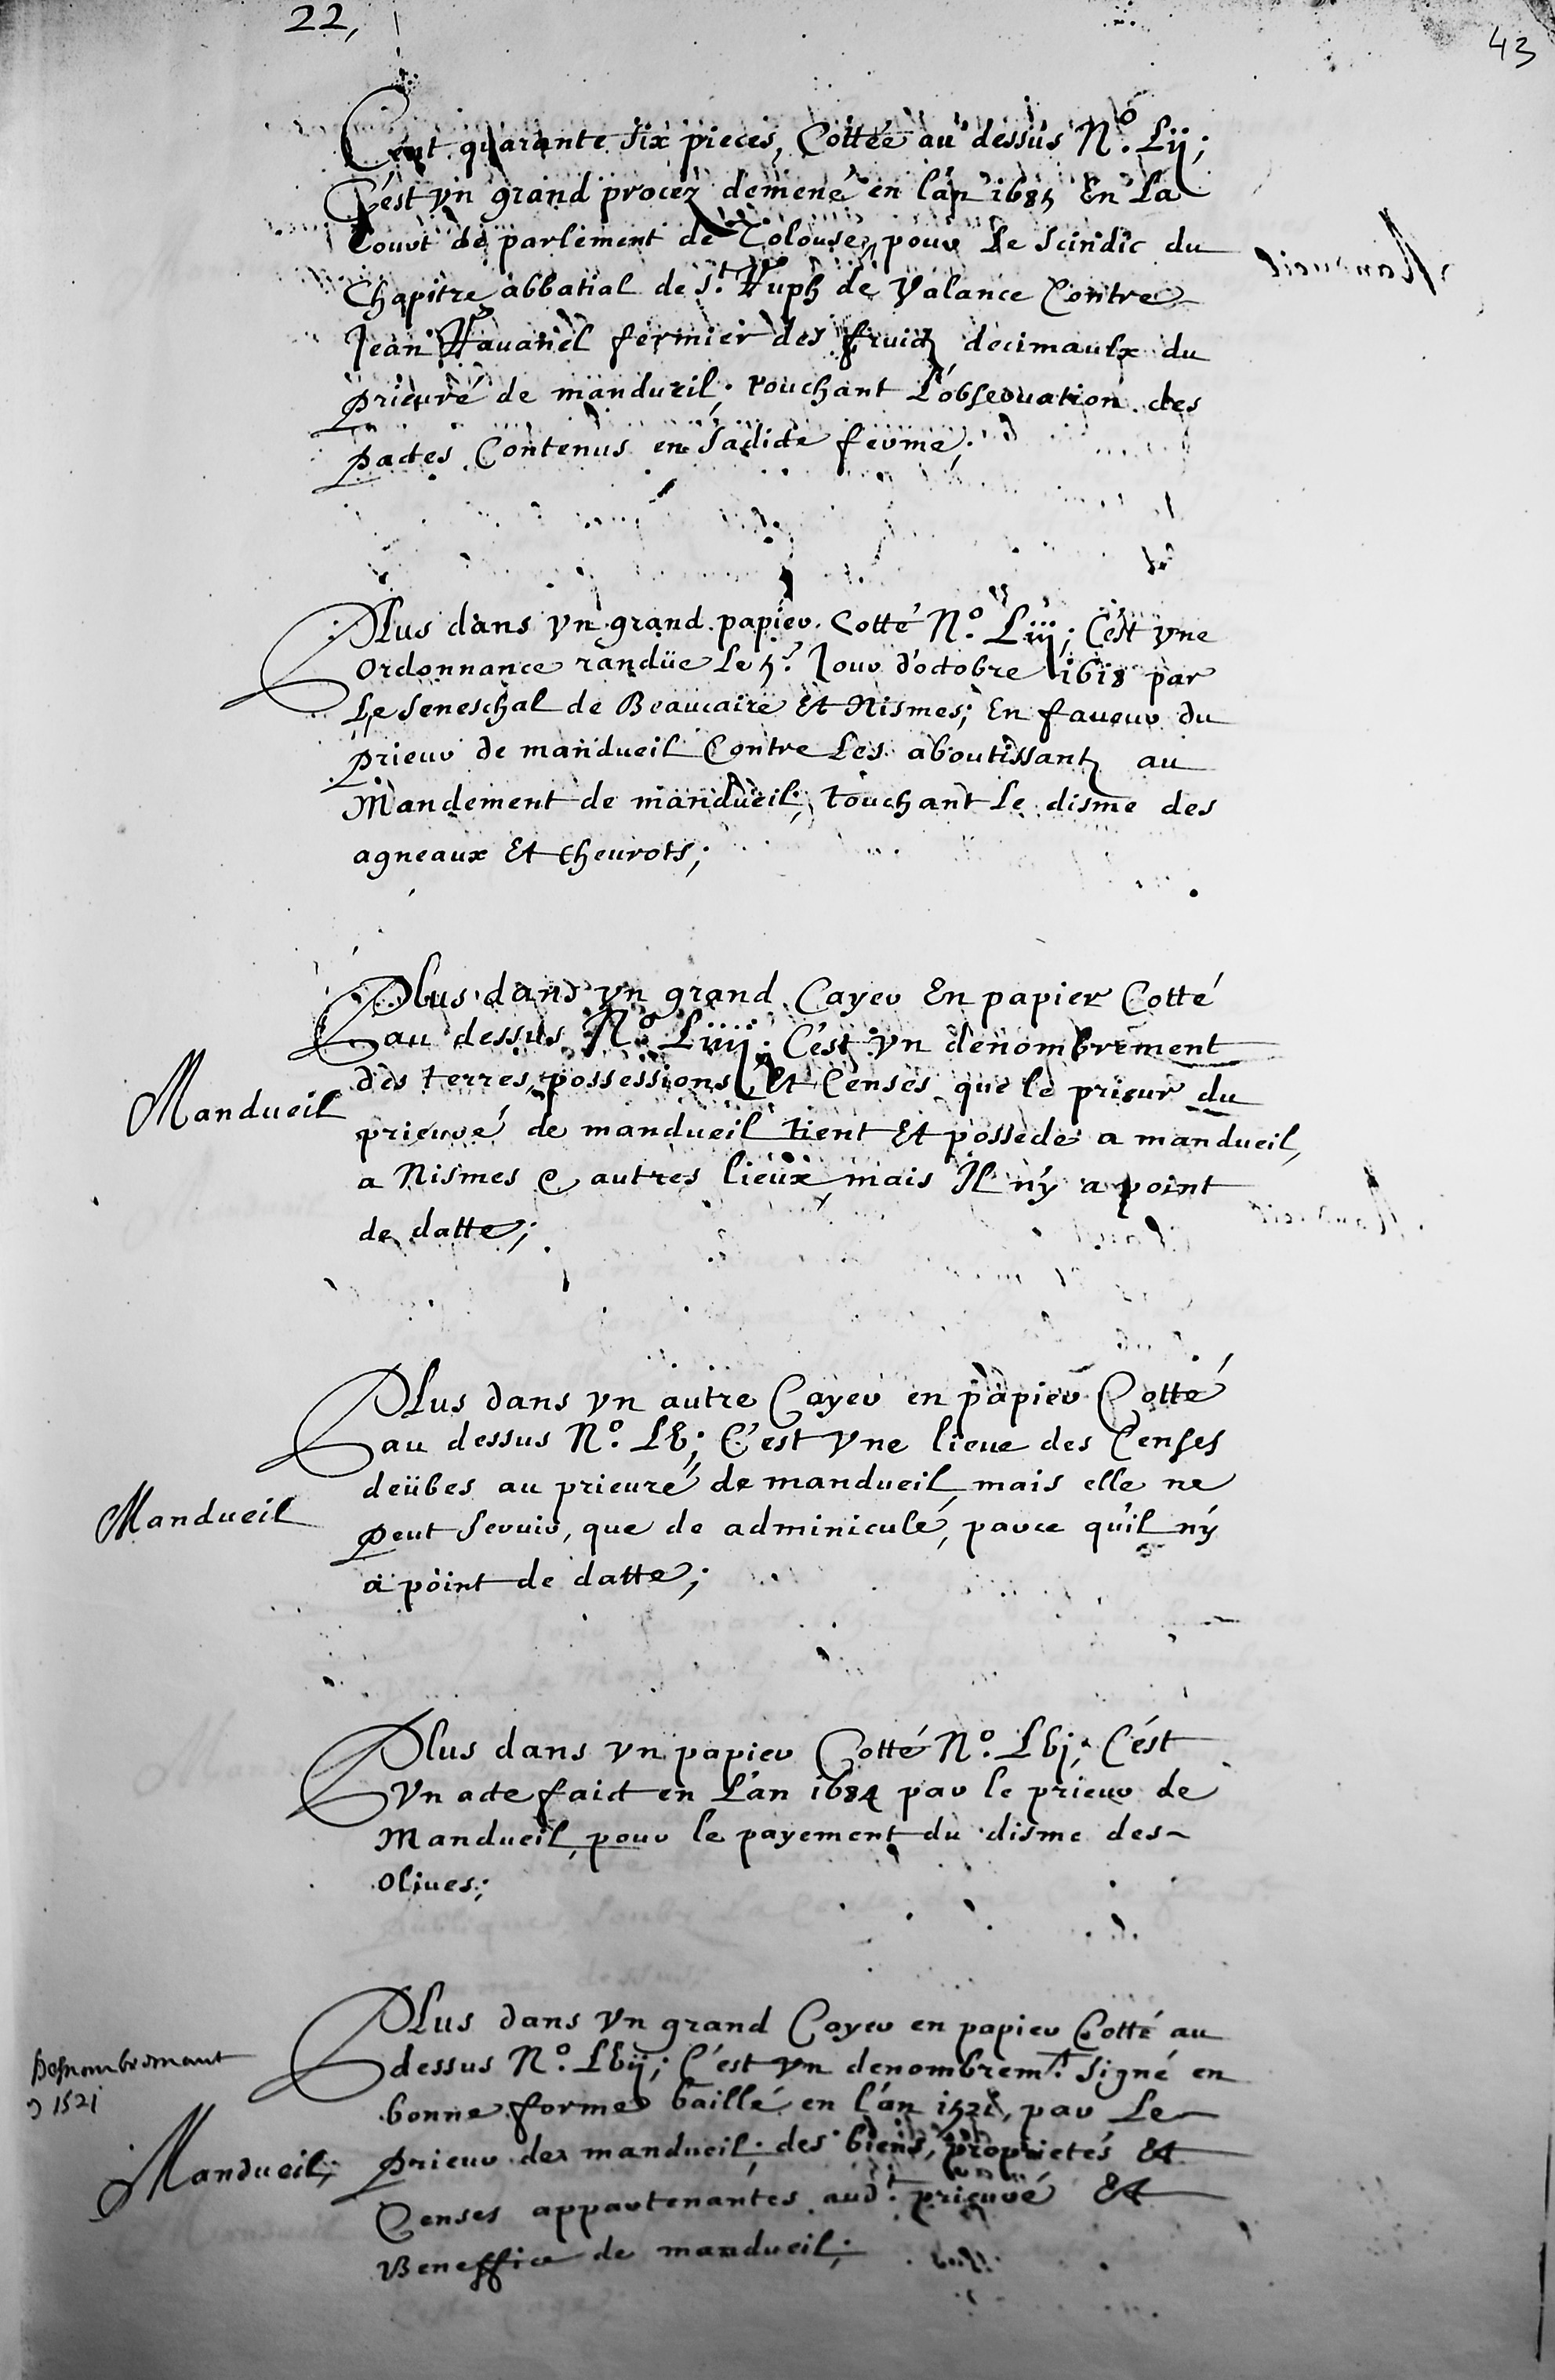 22,
43
Cent quarante six pieces, Cottée au dessus N.º Lij;
C'est vn grand procez demené en l'an 1685 En La
Court de parlement de Tolouse, pour Le Scindic du
Chapitre abbatial de S.t Ruph de Valance Contre
Jean Rauanel fermier des fruictz decimaulx du
prieuré de mandueil; touchant L'obseruation des
pactes Contenus en sadicte ferme;
Plus dans vn grand papier Cotté N.º Liij; C'est vne
Ordonnance randüe Le 5.e Jour d'octobre 1618 par
Le Seneschal de Beaucaire Et Nismes; En faueur du
prieur de mandueil Contre Les aboutissantz au
Mandement de mandueil; touchant Le disme des
agneaux Et Cheurots;
Plus dans vn grand Cayer En papier Cotté
au dessus N.º Liiij; C'est vn denombrement
des terres, possessions, Et Censes que le prieur du
Mandueil
prieuré de mandueil tient Et possede a mandueil,
a Nismes & autres lieux, mais Il n'y a point
de datte;
Plus dans vn autre Cayer en papier Cotté
au dessus N.º Lb; C'est vne lieue des Censes
deübes au prieuré de mandueil, mais elle ne
Mandueil
peut seruir, que de adminiculé, parce qu'il n'y
a point de datte;
Plus dans vn papier Cotté N.º Lbj; C'est
Vn acte faict en L'an 1684 par le prieur de
Mandueil, pour le payement du disme des
Oliues;
Plus dans vn grand Cayer en papier Cotté au
Desnombremant
dessus N.º Lbij; C'est vn denombrem.t signé en
D 1521
bonne forme baillé en l'an 1521, par Le
Mandueil;
prieur de mandueil; des biens, proprietés Et
Censes appartenantes aud.t prieuré Et
Beneffice de mandueil;